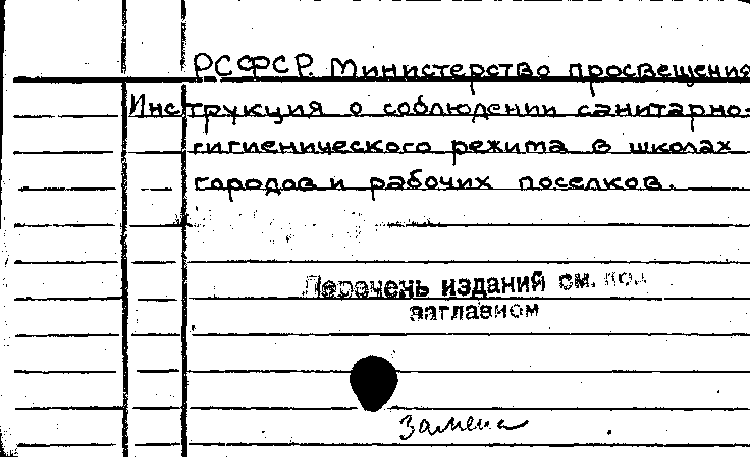 РСФСР. Министерство просвещения
Инструкция о соблюдении санитарно-
гигиенического режима в школах
городов и рабочих поселков.
Перечень изданий см. под
заглавном
Замена